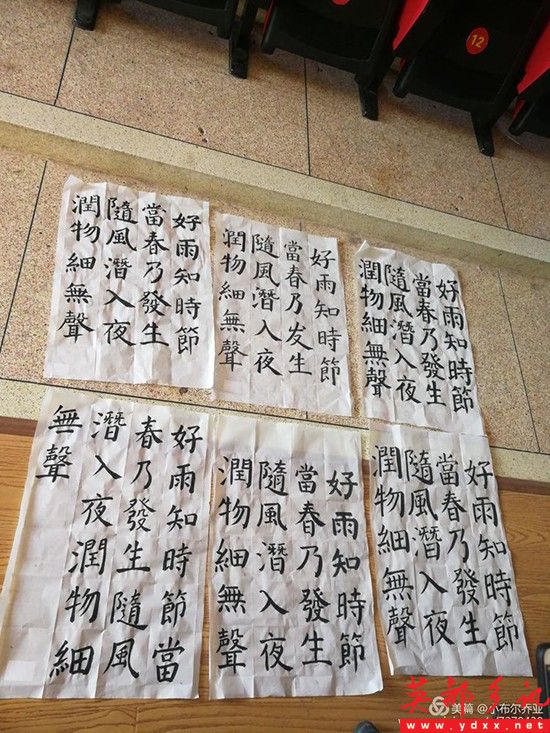 12
好雨知時節
當春乃發生
隨風潛入夜
潤物細無聲
好雨知時節
當春乃发生
隨風潛入夜
潤物細無聲
好雨知時節
當春乃發生
隨風潛入夜
潤物細無聲
好雨知時節當
春乃發生隨風
潛入夜潤物細
無聲
好雨知時節
當春乃發生
隨風潛入夜
潤物細無聲
好雨知時節
當春乃發生
隨風潛入夜
潤物細無聲
美篇 @小布尔乔业
www.ydxx.net